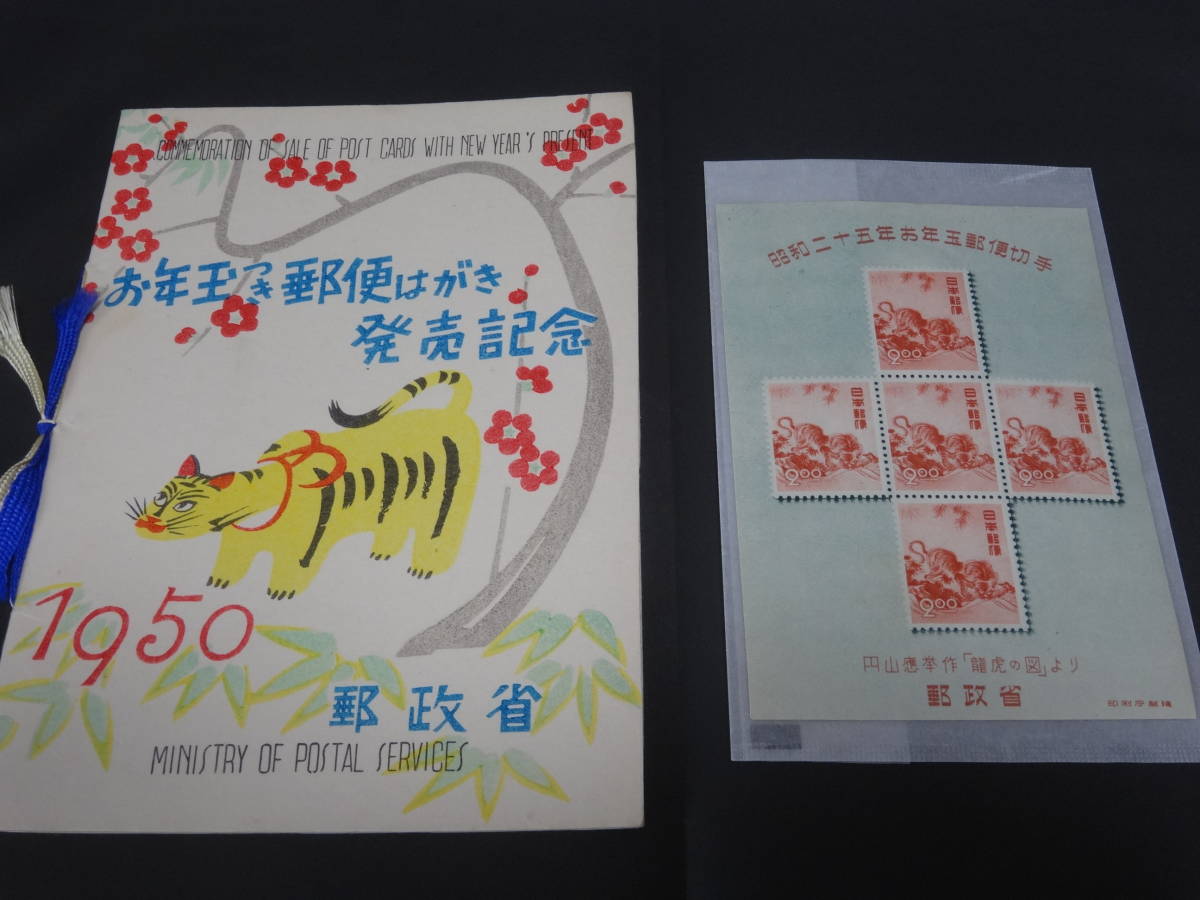 COMMEMORATION OF SALE OF POST CARDS WITH NEW YEAR'S PRESENT
お年玉つき郵便はがき
発売記念
1950
郵政省
MINISTRY OF POSTAL SERVICES
昭和二十五年お年玉郵便切手
日本郵便
2.00
日本郵便
2.00
日本郵便
2.00
日本郵便
2.00
日本郵便
2.00
円山應挙作「龍虎の図」より
郵政省
印刷庁製造